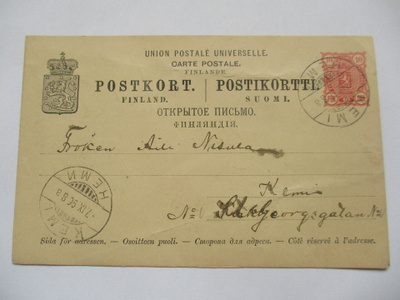 UNION POSTALE UNIVERSELLE.
CARTE POSTALE.
FINLANDE
POSTKORT. POSTIKORTTI.
FINLAND. SUOMI.
ОТКРЫТОЕ ПИСЬМО.
ФИНЛЯНДІЯ.
KEMI
Fröken Aili Nisula
Kemi
KEMI КЕМИ
No Georgsgatan
Sida för adressen. — Osoitteen puoli. — Сторона для адреса. — Côté réservé à l'adresse.